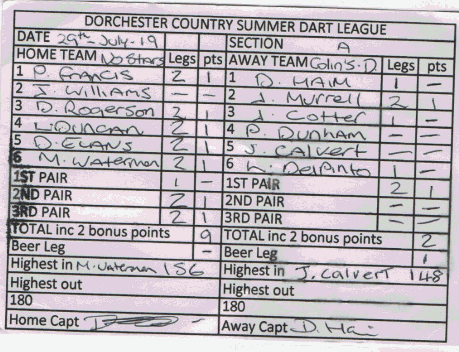 DORCHESTER COUNTRY SUMMER DART LEAGUE
DATE 29th-July-19 SECTION A
HOME TEAM No Stars Legs pts AWAY TEAM Colin's.D Legs pts
1 P. Francis 2 1 1 D. HAIM 1 -
2 J. Williams - - 2 J. Murrell 2 1
3 D. Rogerson 2 1 3 J. Cotter 1 -
4 L. DUNCAN 2 1 4 P. DUNHAM - -
5 D. EVANS 2 1 5 J. CALVERT - -
6 M. Waterman 2 1 6 K. DelPinto 1 -
1ST PAIR 1 - 1ST PAIR 2 1
2ND PAIR 2 1 2ND PAIR - -
3RD PAIR 2 1 3RD PAIR - -
TOTAL inc 2 bonus points 9 TOTAL inc 2 bonus points 2
Beer Leg - Beer Leg 1
Highest in M. Waterman 156 Highest in J. Calvert 148
Highest out Highest out
180 180
Home Capt Away Capt D. Hai